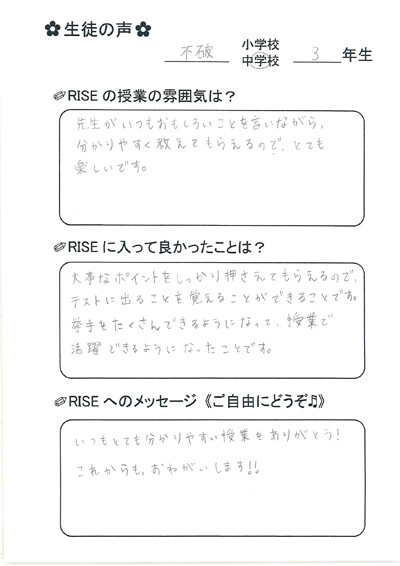 ✿生徒の声✿
不破 小学校 中学校 3 年生
RISE の授業の雰囲気は？
先生がいつもおもしろいことを言いながら、
分かりやすく教えてもらえるので、とても
楽しいです。
RISE に入って良かったことは？
大事なポイントをしっかり押さえてもらえるので、
テストに出ることを覚えることができることです。
挙手をたくさんできるようになって、授業で
活躍できるようになったことです。
RISE へのメッセージ《ご自由にどうぞ♫》
いつもとても分かりやすい授業をありがとう!
これからも、おねがいします!!